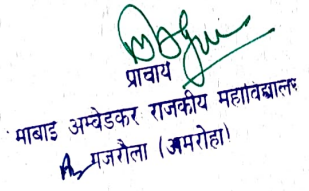 प्राचार्य
माबाई अम्बेडकर राजकीय महाविद्यालय
गजरौला (अमरोहा)